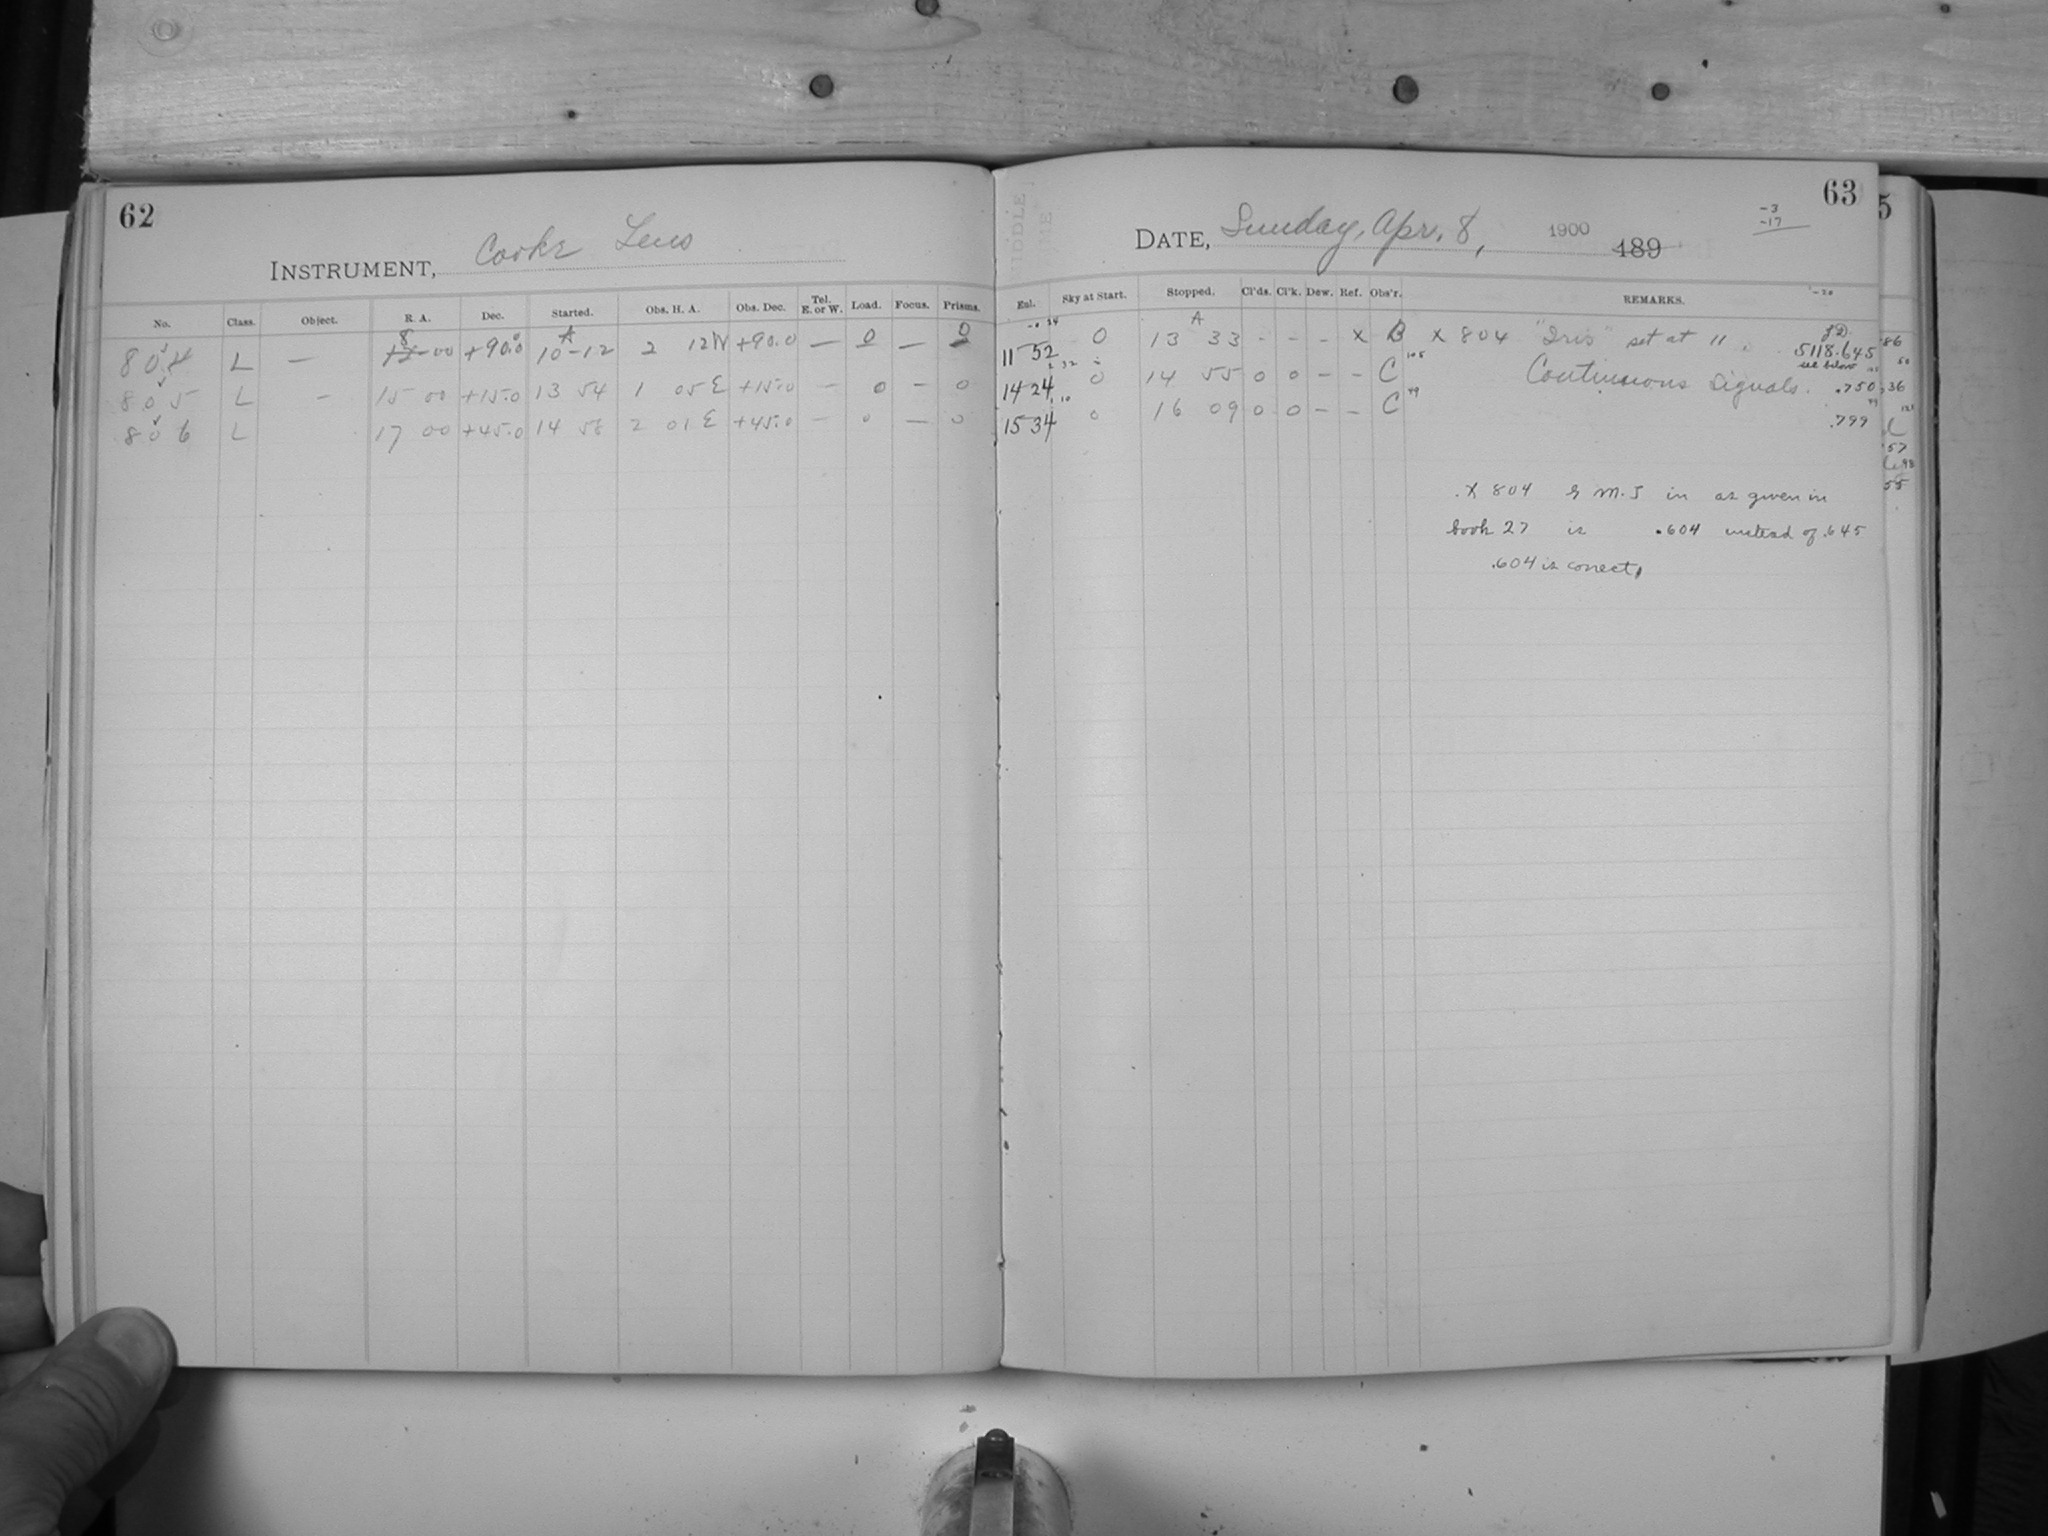 62
INSTRUMENT, Cooke Lens
No. Class. Object. R. A. Dec. Started. Obs. H. A. Obs. Dec. Tel. E. or W. Load. Focus. Prisms.
804 L — 8 12 00 +90.0 A 10-12 2 12W +90.0 — 0 — 0
805 L — 15 00 +15.0 13 54 1 05 E +15.0 — 0 — 0
806 L 17 00 +45.0 14 58 2 01 E +45.0 — 0 — 0
63
-3
-17
DATE, Sunday, Apr. 8, 1900 189
-20
Enl. Sky at Start. Stopped. Cl'ds. Cl'k. Dew. Ref. Obs'r. REMARKS.
11 52 0 A 13 33 - - - X B X 804 "Iris" set at 11. J.D. 5118.645
see below
14 24 0 14 55 0 0 - - C 105 Continuous Signals. .750
15 34 0 16 09 0 0 - - C 49 .799
X 804 G M.T in as given in
book 27 is .604 instead of .645
.604 is correct.
5
86
36
57
55